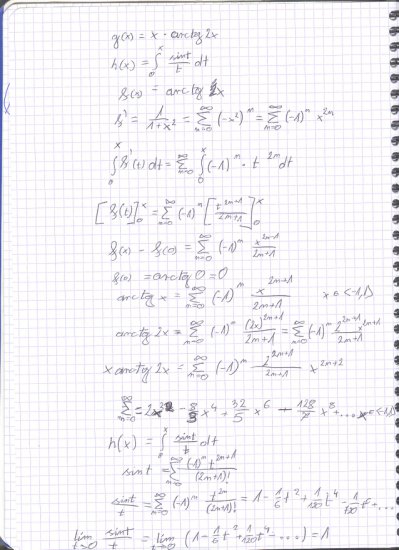 g(x) = x · arctg 2x
h(x) = ∫₀ˣ sin t / t dt
f(x) = arctg x
f' = 1/(1+x²) = ∑_{n=0}^∞ (-x²)ⁿ = ∑_{n=0}^∞ (-1)ⁿ x^{2n}
∫₀ˣ f'(t) dt = ∑_{n=0}^∞ ∫₀ˣ (-1)ⁿ · t^{2n} dt
[f(t)]₀ˣ = ∑_{n=0}^∞ (-1)ⁿ [t^{2n+1}/(2n+1)]₀ˣ
f(x) - f(0) = ∑_{n=0}^∞ (-1)ⁿ x^{2n+1}/(2n+1)
f(0) = arctg 0 = 0
arctg x = ∑_{n=0}^∞ (-1)ⁿ x^{2n+1}/(2n+1) x ∈ <-1,1>
arctg 2x = ∑_{n=0}^∞ (-1)ⁿ (2x)^{2n+1}/(2n+1) = ∑_{n=0}^∞ (-1)ⁿ 2^{2n+1} x^{2n+1}/(2n+1)
x arctg 2x = ∑_{n=0}^∞ (-1)ⁿ 2^{2n+1}/(2n+1) x^{2n+2}
∑_{n=0}^∞ = 2x² - 8/3 x⁴ + 32/5 x⁶ - 128/7 x⁸ + ... x ∈ <-1,1>
h(x) = ∫₀ˣ sin t / t dt
sin t = ∑_{n=0}^∞ (-1)ⁿ t^{2n+1}/(2n+1)!
sin t / t = ∑_{n=0}^∞ (-1)ⁿ t^{2n}/(2n+1)! = 1 - 1/6 t² + 1/120 t⁴ - t⁶ + ...
lim_{t→0} sin t / t = lim_{t→0} (1 - 1/6 t² + 1/120 t⁴ - ...) = 1